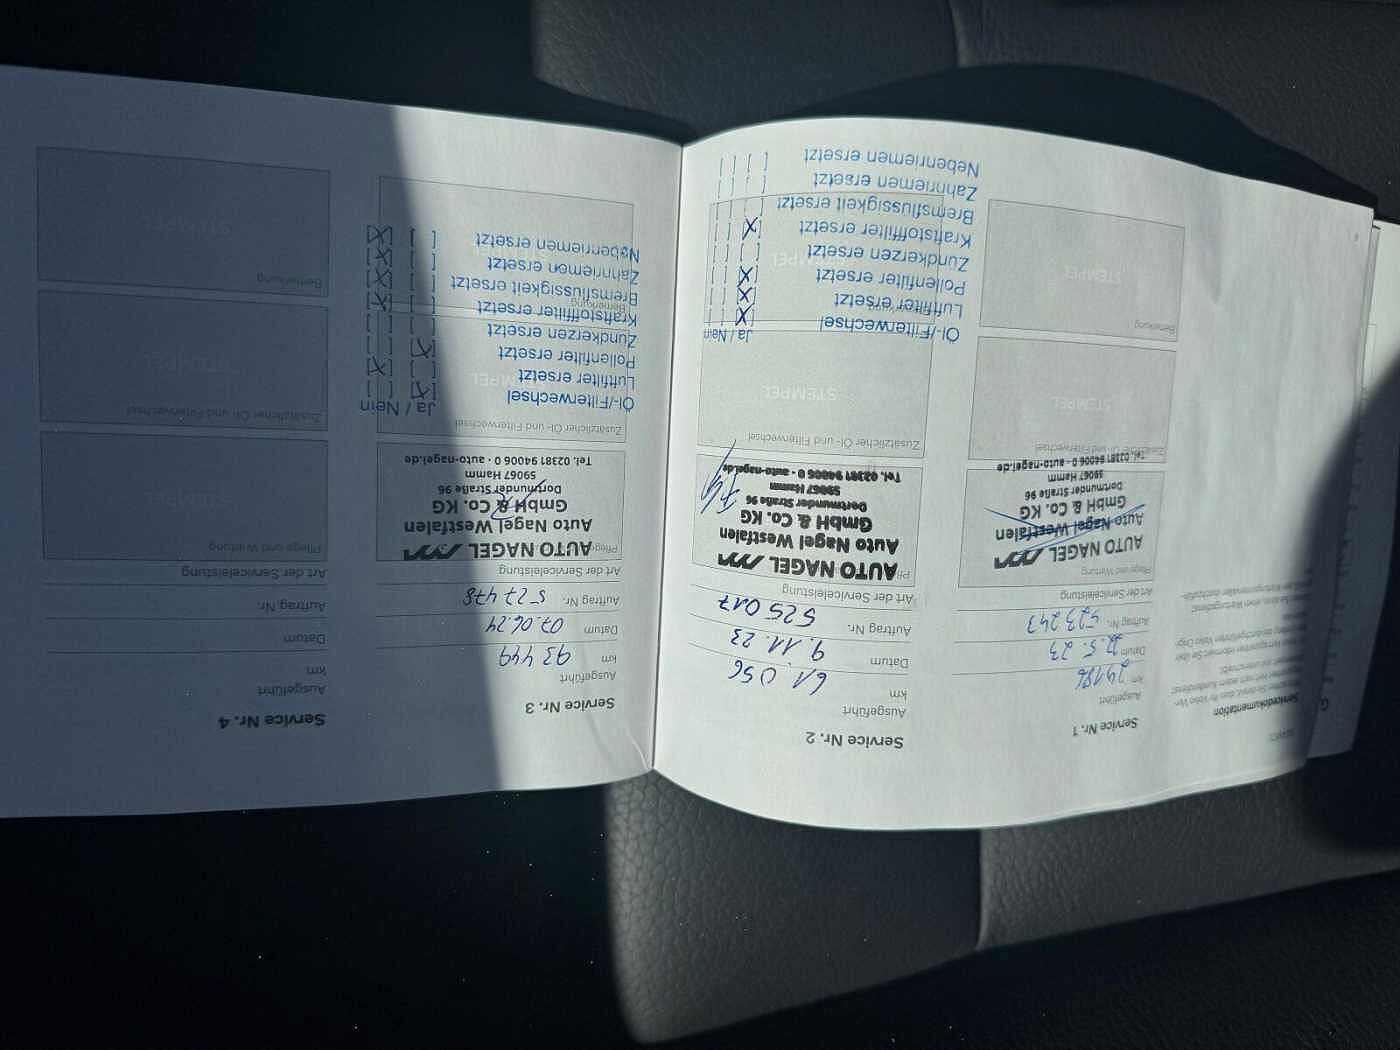 Servicedokumentation
Service Nr. 1
Ausgeführt
km 29186
Datum 22.5.23
Auftrag Nr. 523 243
Art der Serviceleistung
Pflege und Wartung
AUTO NAGEL
Auto Nagel Westfalen
GmbH & Co. KG
Dortmunder Straße 96
59067 Hamm
Tel. 02381 94006 0 · auto-nagel.de
Zusätzlicher Öl- und Filterwechsel
STEMPEL
Bemerkung
STEMPEL
Service Nr. 2
Ausgeführt
km 61.056
Datum 9.11.23
Auftrag Nr. 525 017
Art der Serviceleistung
AUTO NAGEL
Auto Nagel Westfalen
GmbH & Co. KG
Dortmunder Straße 96
59067 Hamm
Tel. 02381 94006 0 · auto-nagel.de
Zusätzlicher Öl- und Filterwechsel
STEMPEL
Ja / Nein
Öl-/Filterwechsel [X] [ ]
Luftfilter ersetzt [X] [ ]
Pollenfilter ersetzt [X] [ ]
Zündkerzen ersetzt [ ] [ ]
Kraftstofffilter ersetzt [X] [ ]
Bremsflüssigkeit ersetzt [ ] [ ]
Zahnriemen ersetzt [ ] [ ]
Nebenriemen ersetzt [ ] [ ]
Service Nr. 3
Ausgeführt
km 93 449
Datum 07.06.24
Auftrag Nr. 527 478
Art der Serviceleistung
AUTO NAGEL
Auto Nagel Westfalen
GmbH & Co. KG
Dortmunder Straße 96
59067 Hamm
Tel. 02381 94006 0 · auto-nagel.de
Zusätzlicher Öl- und Filterwechsel
Ja / Nein
Öl-/Filterwechsel [X] [ ]
Luftfilter ersetzt [ ] [X]
Pollenfilter ersetzt [X] [ ]
Zündkerzen ersetzt [ ] [ ]
Kraftstofffilter ersetzt [ ] [X]
Bremsflüssigkeit ersetzt [ ] [X]
Zahnriemen ersetzt [ ] [X]
Nebenriemen ersetzt [ ] [X]
Service Nr. 4
Ausgeführt
km
Datum
Auftrag Nr.
Art der Serviceleistung
Pflege und Wartung
STEMPEL
Zusätzlicher Öl- und Filterwechsel
STEMPEL
Bemerkung
STEMPEL